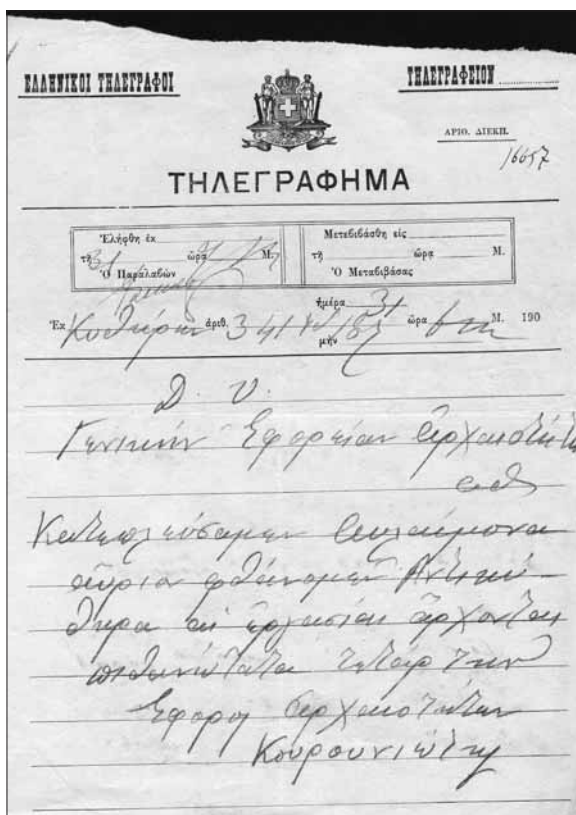 ΕΛΛΗΝΙΚΟΙ ΤΗΛΕΓΡΑΦΟΙ
ΤΗΛΕΓΡΑΦΕΙΟΝ
ΑΡΙΘ. ΔΙΕΚΠ.
16657
ΤΗΛΕΓΡΑΦΗΜΑ
Ἐλήφθη ἐκ
τῇ 31 ὥρᾳ Μ.
Ὁ Παραλαβών
Μετεβιβάσθη εἰς
τῇ ὥρᾳ Μ.
Ὁ Μεταβιβάσας
Ἐκ Κυθήρων ἀριθ. 341 ἡμέρα 31 μην ὥρα Μ. 190
Δ. Υ.
Γενικὴν Ἐφορείαν Ἀρχαιοτήτ
Κατεπλεύσαμεν Αυλαίμονα
αὔριον φθάνομεν Ἀντικύ-
θηρα αἱ ἐργασίαι ἄρχονται
πιθανώτατα τετάρτην
Ἔφορος ἀρχαιοτήτων
Κουρουνιώτης